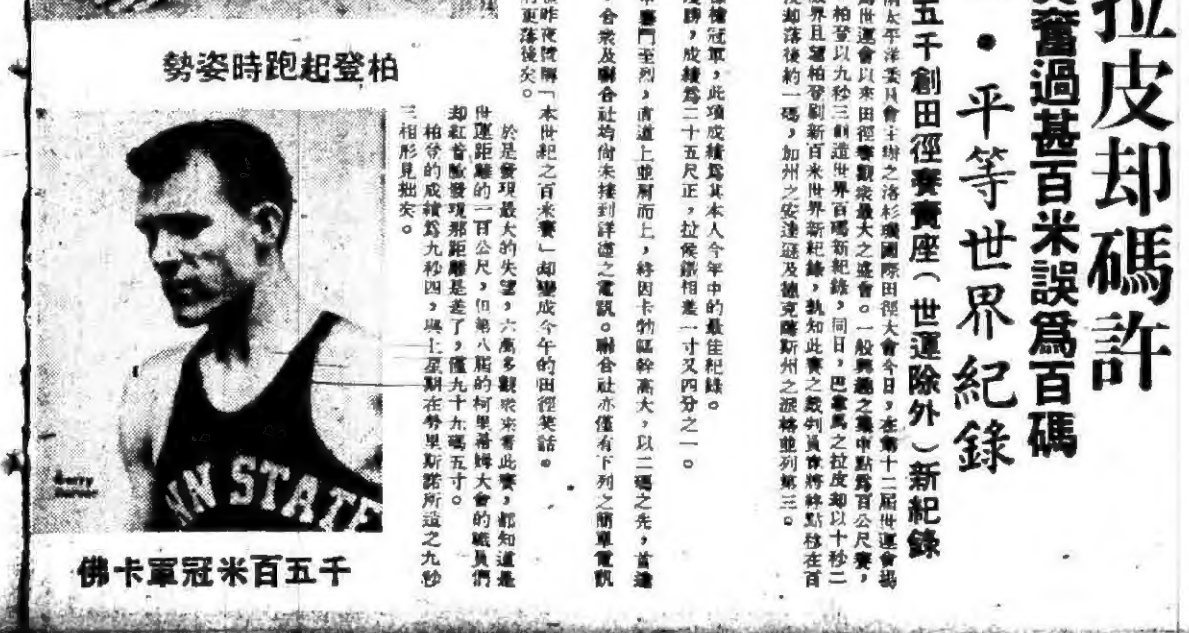 拉皮却碼許
奮過甚百米誤爲百碼
平等世界紀錄
五千創田徑賽賣座（世運除外）新紀錄
太平洋委員會主辦之洛杉磯國際田徑大會今日，在第十二屆世運會場
世運會以來田徑賽觀衆最大之盛會。一般興趣之集中點爲百公尺賽，
柏登以九秒三創造世界百碼新紀錄，同日，巴拿馬之拉皮却以十秒二
界且望柏登刷新百米世界新紀錄，孰知此賽之裁判員會將終點移在百
却落後約一碼，加州之安達遜及德克薩斯州之派格並列第三。
冠軍，此項成績爲其本人今年中的最佳紀錄。
勝，成績爲二十五尺正，拉候鎔相差一寸又四分之一。
鬥至烈，直道上並肩而上，終因卡勃軀幹高大，以二碼之先，首達
合衆及聯合社均尙未接到詳達之電訊。聯合社亦僅有下列之簡單電訊
昨夜贊歸「本世紀之百米賽」却變成今年的田徑笑話。
更落後矣。
於是發現最大的失望，六萬多觀衆來看此賽，都知道是
世運距離的一百公尺，但第八屆的柯里希姆大會的職員們
却紅首臉發現那距離是差了，僅九十九碼五寸。
柏登的成績爲九秒四，與上星期在勞里斯諾所造之九秒
三相形見拙矣。
勢姿時跑起登柏
NN STATE
佛卡軍冠米百五千